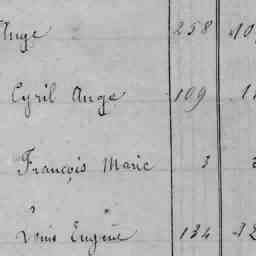 Ange 258
Cyril Ange 109
François Marie 3
" "
Louis Eugène 134 32